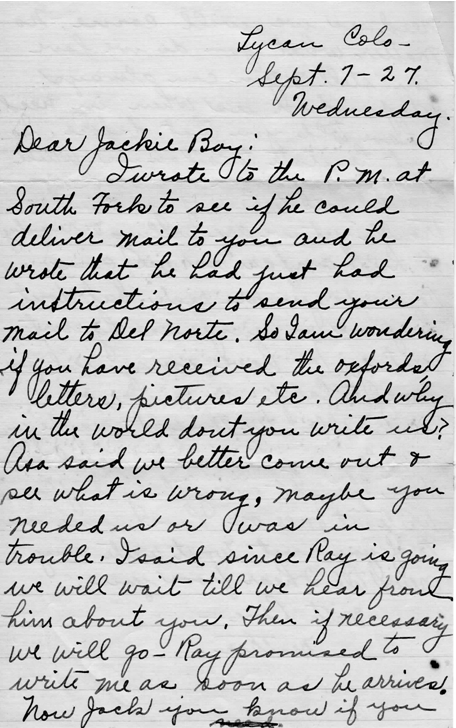 Lycan Colo-
Sept. 7-27.
Wednesday.
Dear Jackie Boy:
I wrote to the P.M. at
South Fork to see if he could
deliver mail to you and he
wrote that he had just had
instructions to send your
mail to Del Norte. So I am wondering
if you have received the oxfords,
letters, pictures etc. And why
in the world dont you write us?
Asa said we better come out &
see what is wrong, maybe you
needed us or was in
trouble. I said since Ray is going
we will wait till we hear from
him about you. Then if necessary
we will go - Ray promised to
write me as soon as he arrives.
Now Jack you know if you